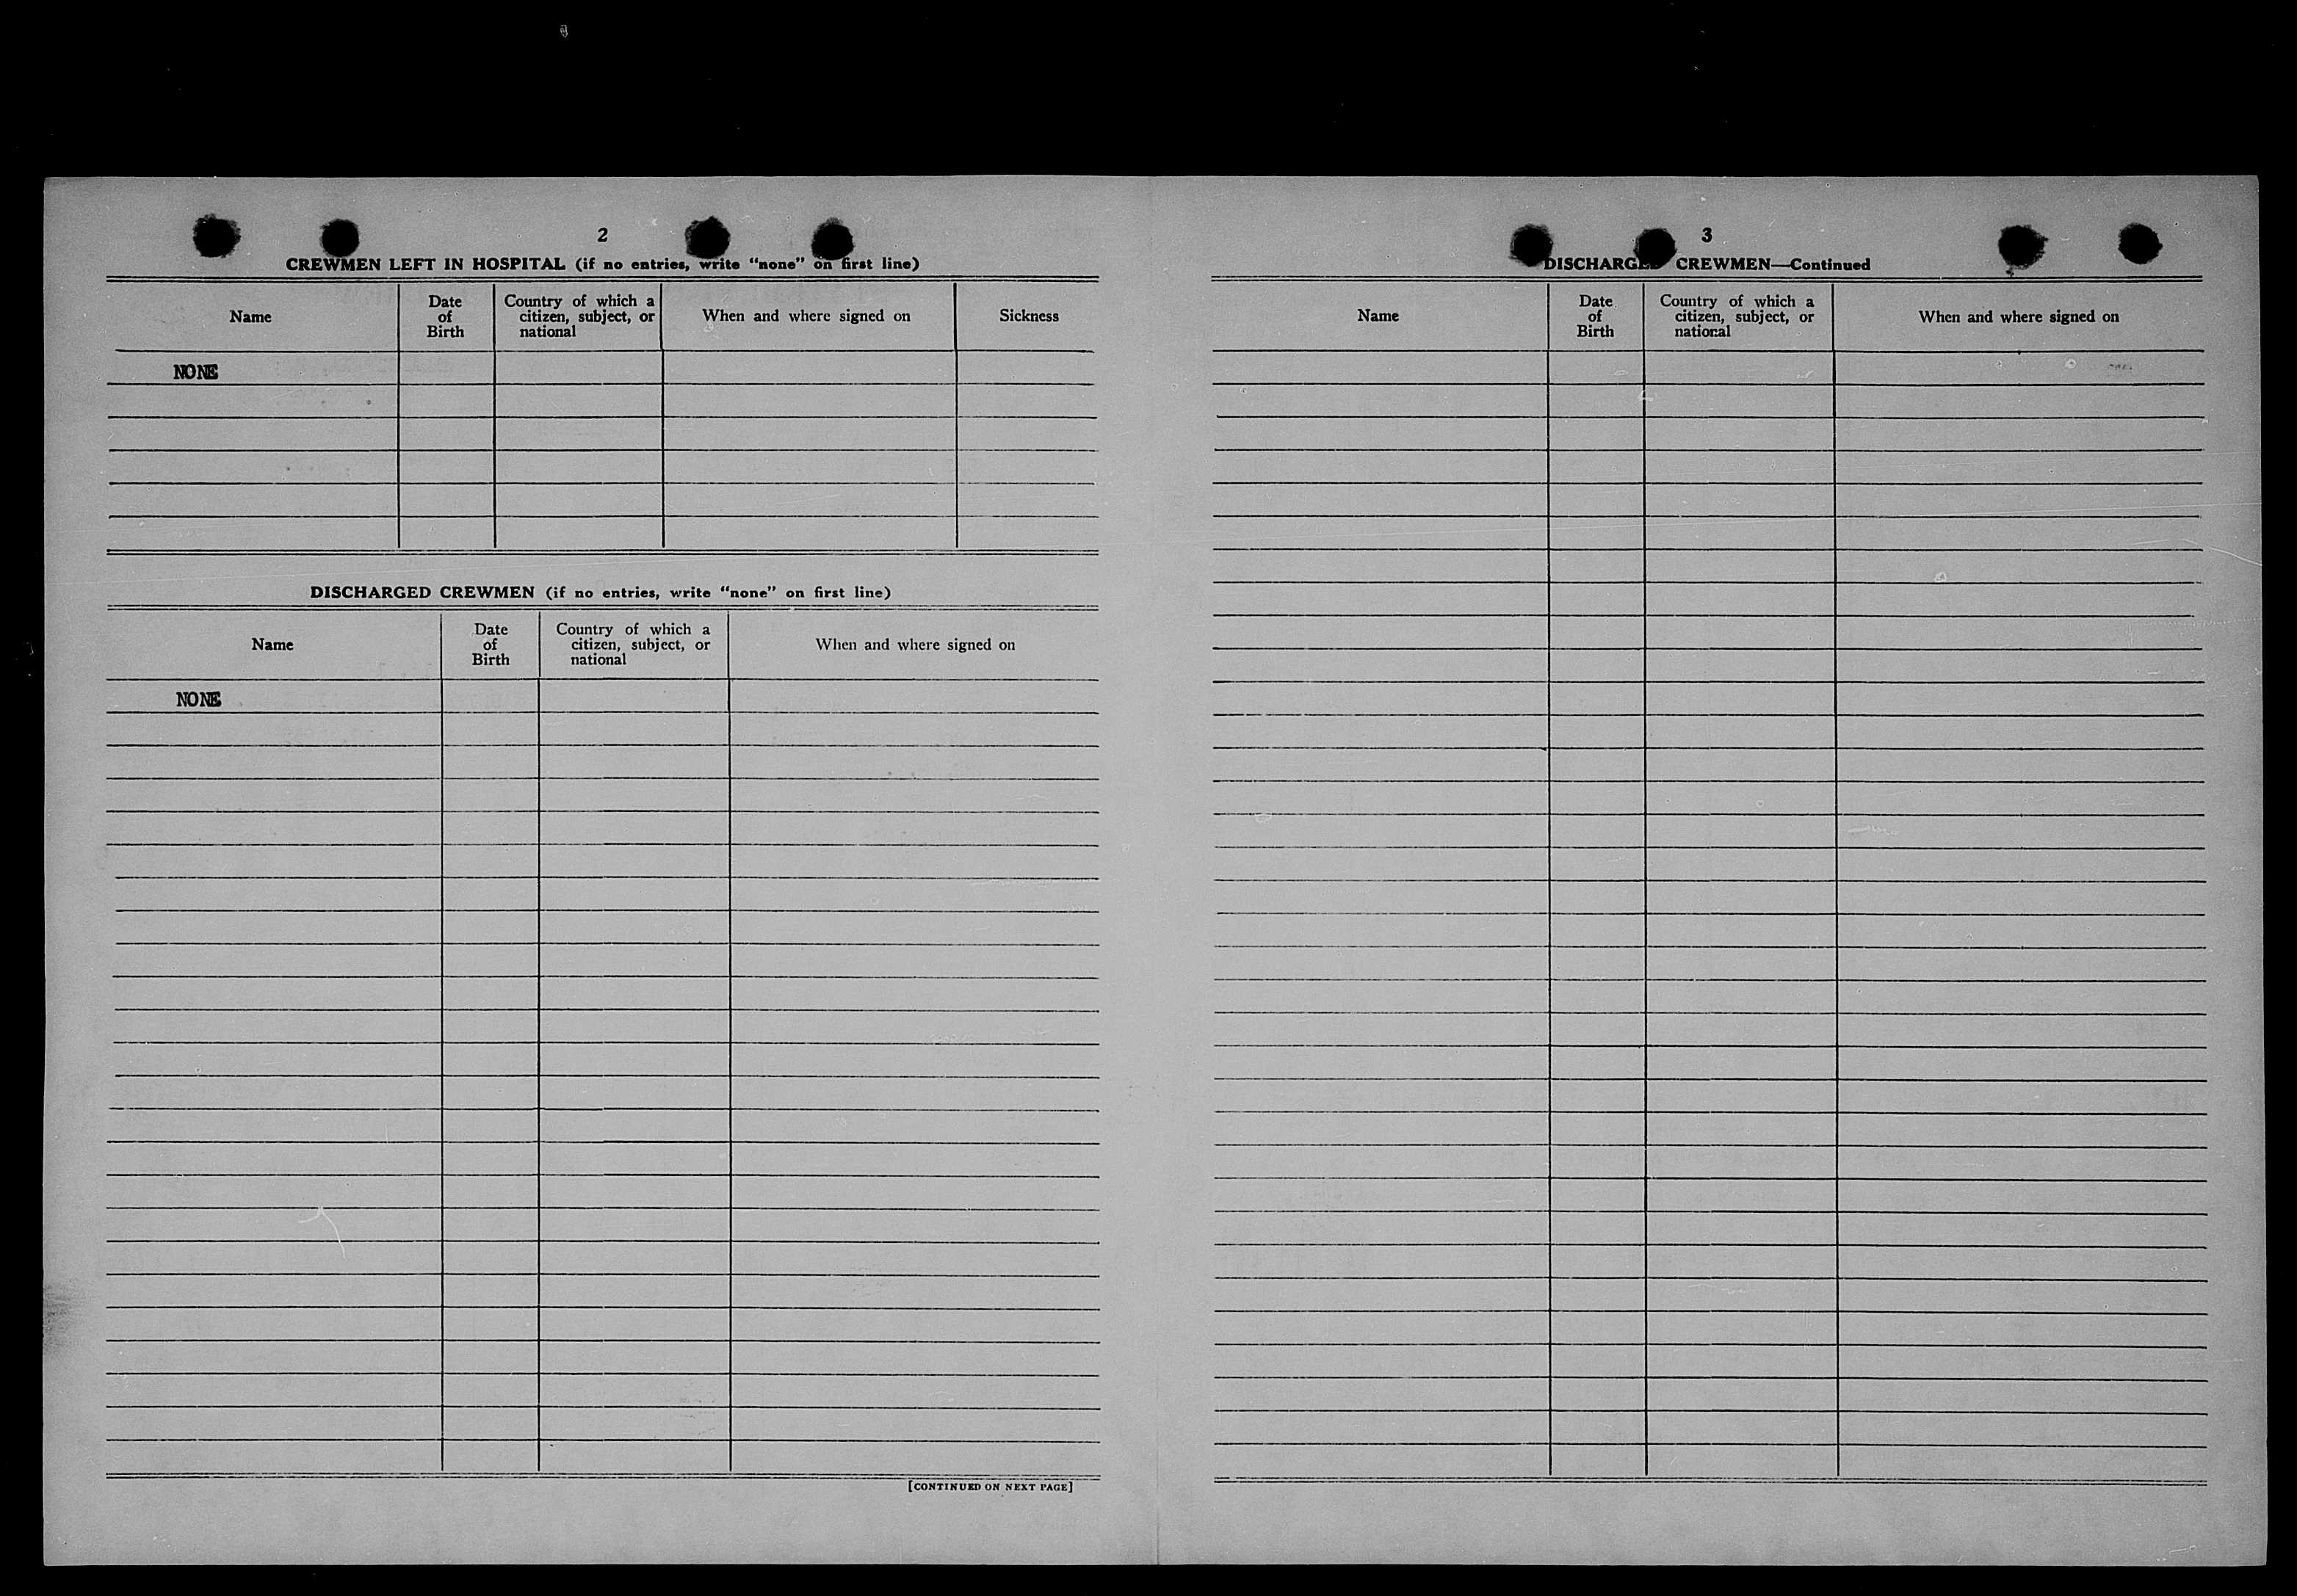 2
CREWMEN LEFT IN HOSPITAL (if no entries, write “none” on first line)
Name
Date of Birth
Country of which a citizen, subject, or national
When and where signed on
Sickness
NONE
DISCHARGED CREWMEN (if no entries, write “none” on first line)
Name
Date of Birth
Country of which a citizen, subject, or national
When and where signed on
NONE
[CONTINUED ON NEXT PAGE]
3
DISCHARGED CREWMEN—Continued
Name
Date of Birth
Country of which a citizen, subject, or national
When and where signed on